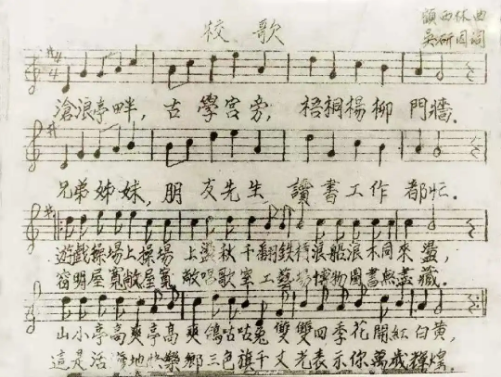 校歌
顧西林曲
吳研因詞
滄浪亭畔，古學宮旁，梧桐楊柳門牆．
兄弟姊妹，朋友先生讀書工作都忙．
遊戲操場上操場上盪秋千翻鉄行浪船浪木同來盪，
窗明屋寬屋寬敞唱歌室工藝場博物圖書無盡藏．
山小亭高爽亭高爽鴿咕咕兔雙雙四季花開紅白黃，
這是活地樂鄉三色旗千丈光表示你萬歲輝煌．